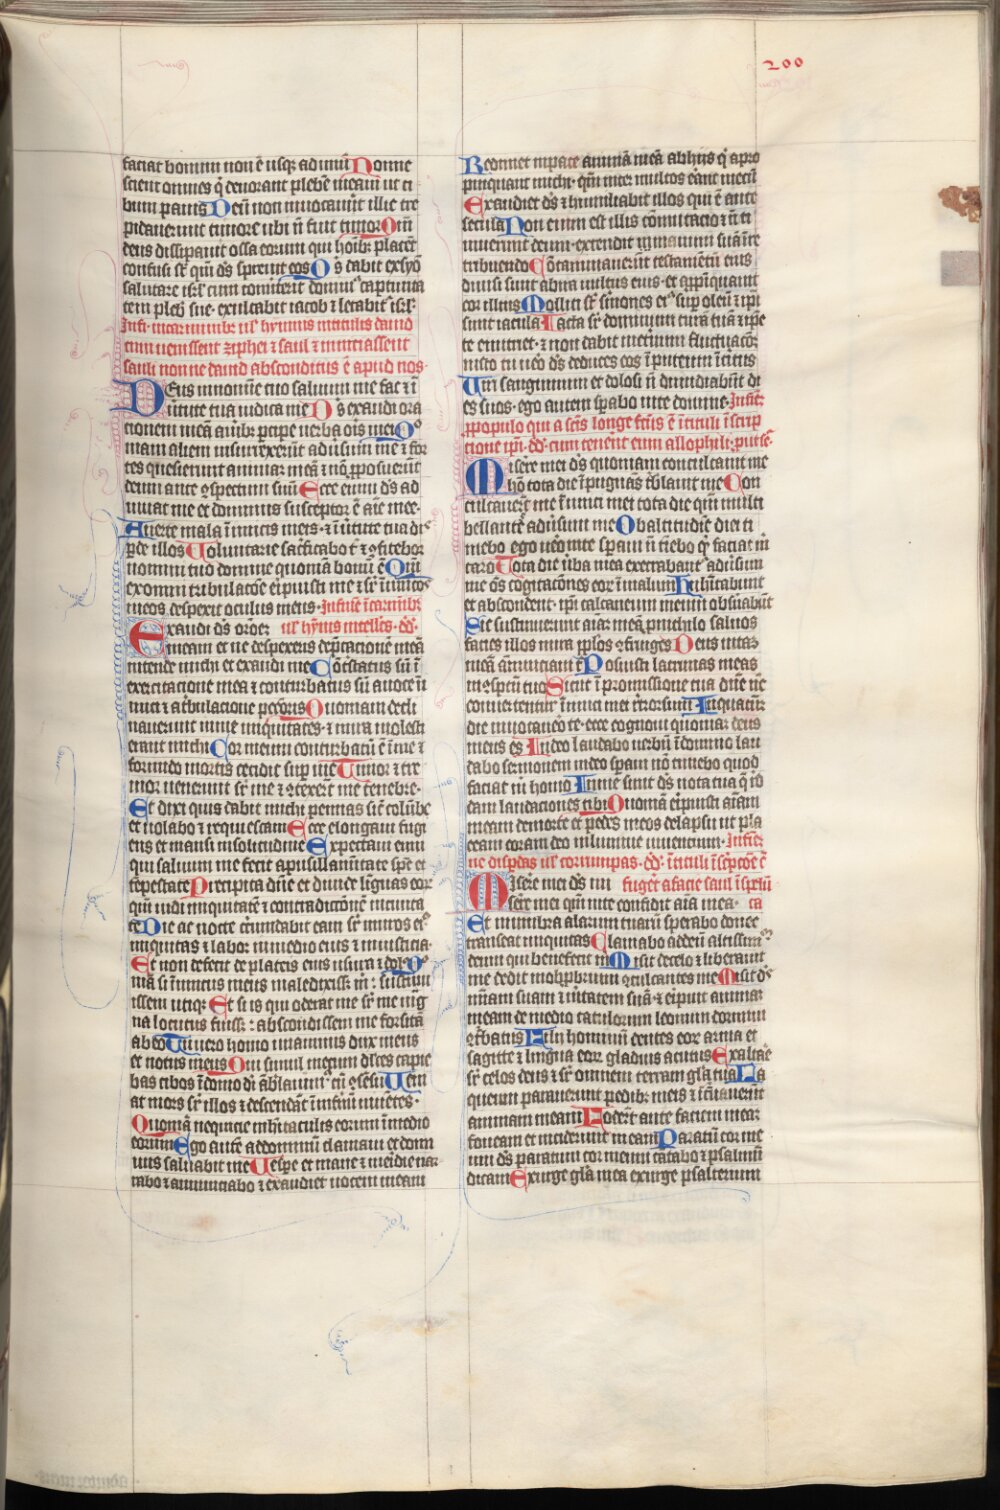 200
faciat bonum non ē usq̄ ad unū Nonne
scient omnes q̄ devorant plebē meam ut ci
bum panis Deū non invocaverūt illic tre
pidaverunt timore ubi nō fuit timor Qm̄
deus dissipavit ossa eorum qui hoībꝫ placēt
confusi sē qm̄ dꝰs sprevit eos Qꝰs dabit ex syō
salutare isrl̄ cum converterit dominꝰ captivita
tem plebꝭ sue· exultabit iacob ⁊ letabitꝰ isrl̄·
In finē· in carminibꝫ ul̓ hymnis intellectꝰ david
cum venissent ziphei ⁊ saul ⁊ nunciassent
sauli nonne david absconditus ē apud nos·
Deus in nomine tuo salvum me fac et ī
virtute tua iudica me Dꝰs exaudi ora
cionem meā aurībꝫ p̄cipe verba oris mei Qꝰ
niam alieni insurrexerūt adv̓sum me ⁊ for
tes quesierunt animam meā ⁊ nō p̄posuerūt
deum ante ꝯspectum suū Ecce enim dꝰs ad
iuvat me et dominus susceptor ē aīe mee·
Averte mala inimicis meis· ⁊ ī v̓itute tua disꝰ
p̓de illos Voluntarie sac̓ficabo t̄ ⁊ ꝯfitebor
nomini tuo domine quoniā bonū ē Qm̄
ex omni tribulacōe eripuisti me ⁊ sr̄ inimicos
meos despexit oculus meus· In finē ī carminibꝫ
Exaudi dꝰs orōez ul̓ hȳnis intellcꝰs· dd̄·
meam et ne despexeris dep̄cacionē meā
intende michi et exaudi me Cōtristatus sū ī
exercitacione mea ⁊ conturbatus sū a voce inī
mici ⁊ a tribulacione peccoris Quoniam decli
naverunt in me iniquitates· ⁊ in ira molesti
erant michi Cor meum conturbatū ē ī me ⁊
formido mortis cecidit sup̄ me Timor ⁊ tre
mor venerunt sr̄ me ⁊ ꝯtexerūt me tenebre·
Et dixi quis dabit michi pennas sicꝰ colūbe
et volabo ⁊ requiescam Ecce elongavi fugi
ens et mansi in solitudine Expectavi eum
qui salvum me fecit a pusillanimitate spꝰs et
tēpestate Precipita dn̄e et divide linguas eorꝫ
qm̄ vidi iniquitatē ⁊ contradiccionē in civita
te Die ac nocte circūdabit eam sr̄ muros eiꝰ
iniquitas ⁊ labor in medio eius ⁊ iniusticia·
Et non defecit de plateis eius usura ⁊ dolꝰ Qꝰ
niā si inimicus meus maledixisset m̄ : sustinu
issem utiqꝫ Et si is qui oderat me sr̄ me mag
na locutus fuisset : abscondissem me forsitan
ab eo Tu vero homo unanimis dux meus
et notus meus Qui simul mecum dulces capie
bas cibos ī domo dī ābulavimꝰ cū ꝯsensu Veni
at mors sr̄ illos ⁊ descendāt ī infernū viventes·
Quoniā nequicie in habitaculis eorum ī medio
eorum Ego autē ad dominū clamavi et domi
nus salvabit me Vespe et mane ⁊ meridie nar
rabo ⁊ annunciabo ⁊ exaudiet vocem meam
Redimet in pace animā meā ab hiis q̄ apro
pinquant michi· qm̄ inter multos erant mecū
Exaudiet dꝰs ⁊ humiliabit illos qui ē ante
secula Non enim est illis cōmutacio ⁊ nō ti
muerunt deum· extendit manum suā ī re
tribuendo Cōtaminaverūt testamentū eius
divisi sunt ab ira vultus eius· et app̄pinquavit
cor illius Molliti sr̄ sermones eiꝰ sup̄ oleū ⁊ ipī
sunt iacula Iacta sr̄ dominum curā tuā ⁊ ipse
te enutriet· ⁊ non dabit in eternum fluctuacōez
iusto Tu vero dꝰs deduces eos ī puteum ī teritꝰ
Viri sanguinum et dolosi nō dimidiabūt di
es suos· ego autem sp̄abo in te domine· In finē
p̄ populo qui a scīs longe factus ē ī tituli īscrip
cione ipī· dd̄· cum tenerent eum allophili· p̄ut ꝫ̄
Misere mei dꝰs quoniam conculcavit me
hō tota die īpugnās tribulavit me Con
culcaverūt me inimici mei tota die qm̄ multi
bellantes adv̓sum me Ab altitudine diei ti
mebo ego vero in te sp̄avi nō timebo qͥ faciat m̄
caro Tota die v̓ba mea execrabantꝰ adv̓sum
me ōs cogitacōnes eorꝫ ī malum Inhabitabunt
et abscondent· ipī calcaneum meum observabūt
Sic sustinuerunt aīaꝫ meā p̄ nichilo salvos
facies illos in ira pplōs ꝯfringes Deus vitam
meā annunciavi t̄ Posuisti lacrimas meas
in ꝯspectu tuo Sicut ī promissione tua dn̄e tūc
convertentur inimici mei retrorsum In quacūqꝫ
die invocavero te· ecce cognovi quoniam deus
meus es In deo laudabo verbū ī domino lau
dabo sermonem in deo sp̄avi nō timebo quod
faciat m̄ homo In me sunt dꝰs vota tua q̄ red
dam laudaciones tibi Quoniā eripuisti aīam
meam de morte et pedes meos de lapsu ut pla
ceam coram deo in lumine viventium· In finē
ne disp̓das ul̓ corrumpas· dd̄· ī tituli īscripcōe c̄
Misere mei dꝰs mi fugeret a facie saul ī spelū
sere mei qm̄ in te confidit aīa mea· ca
Et in umbra alarum tuarū sperabo donec
transeat iniquitas Clamabo ad deū altissimū
deum qui benefecit m̄ Misit de celo ⁊ liberavit
me dedit in obprobrium ꝯculcantes me Misit dꝰs
misericordiam suam ⁊ v̓itatem suā· ⁊ eripuit animam
meam de medio catulorum leonum dormivi
ꝯturbatus Filii hominum dentes eorꝫ arma et
sagitte ⁊ lingua eorꝫ gladius acutus Exaltare
sr̄ celos deus ⁊ sr̄ omnem terram gl̄a tua La
queum paraverunt pedibꝫ meis ⁊ īcurvaverūt
animam meam Foderūt ante faciem meam
foveam et inciderunt in eam Paratū cor me
um dꝰs paratum cor meum cātabo ⁊ psalmū
dicam Exurge gl̄a mea exurge psalterium